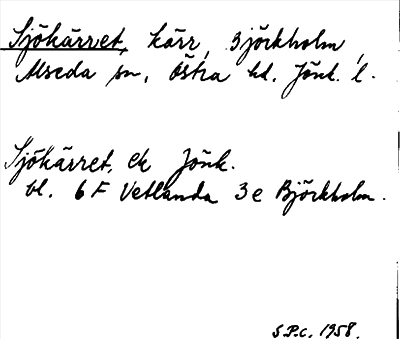 Sjökärret, kärr, Björkholm,
Alseda sn, Östra hd. Jönk. l.
Sjökärret, ek Jönk.
bl. 6F Vetlanda 3e Björkholm.
S.P.C. 1958.